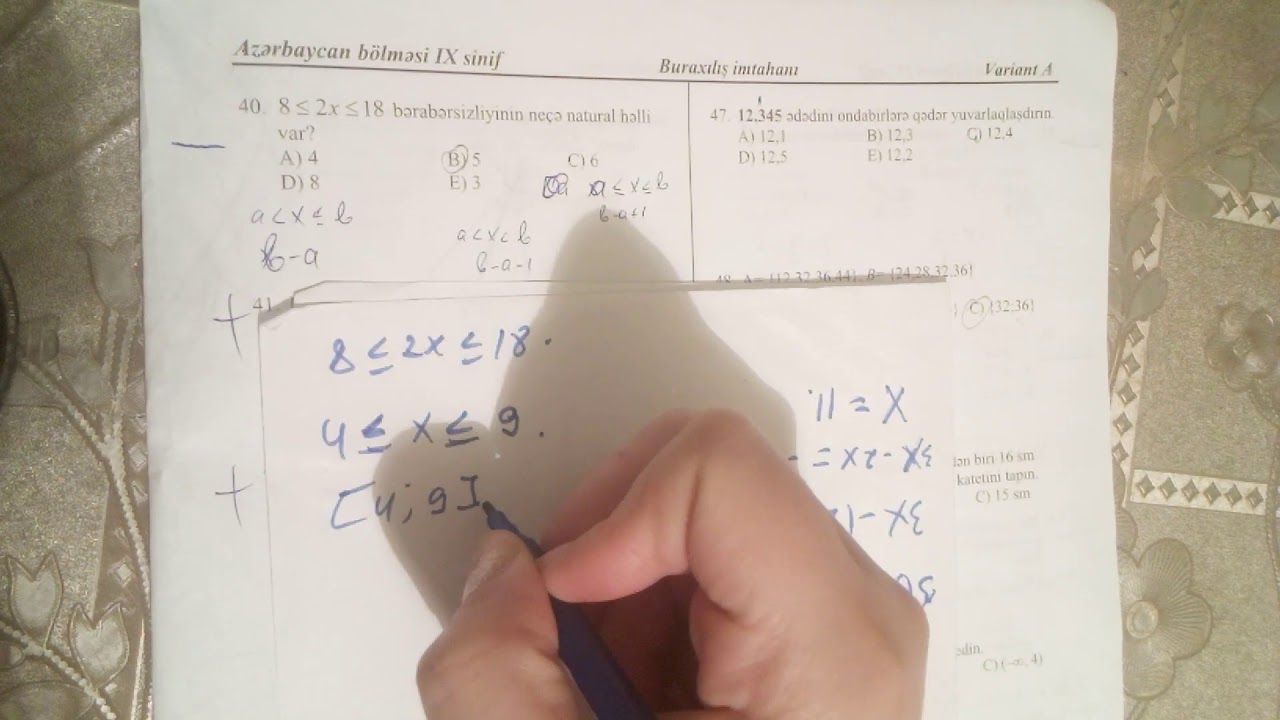 Azərbaycan bölməsi IX sinif
Buraxılış imtahanı
Variant A
40. 8 ≤ 2x ≤ 18 bərabərsizliyinin neçə natural həlli
var?
A) 4 B) 5 C) 6
D) 8 E) 3
a < x ≤ b
b-a
a < x < b
b-a-1
a ≤ x ≤ b
47. 12,345 ədədini ondabirlərə qədər yuvarlaqlaşdırın.
A) 12,1 B) 12,3 C) 12,4
D) 12,5 E) 12,2
48. A= {12,32,36,44}, B= {24,28,32,36}
C) {32;36}
41
8 ≤ 2x ≤ 18.
4 ≤ x ≤ 9.
[4; 9]
X = 11.
3X -2X = -
3X -12
30
lən biri 16 sm
katetini tapın.
C) 15 sm
edin.
C) (-∞; 4)